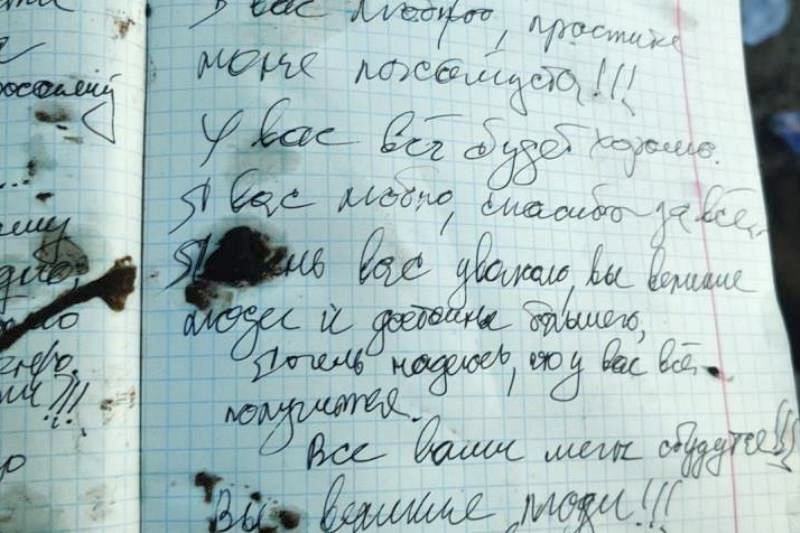 Я вас люблю, простите
меня пожалуйста!!!
У вас всё будет хорошо.
Я вас люблю, спасибо за всё.
Я вас уважаю, вы великие
люди и достойны большего,
Я очень надеюсь, что у вас всё
получится.
Все ваши мечты сбудутся!!!
Вы великие люди!!!